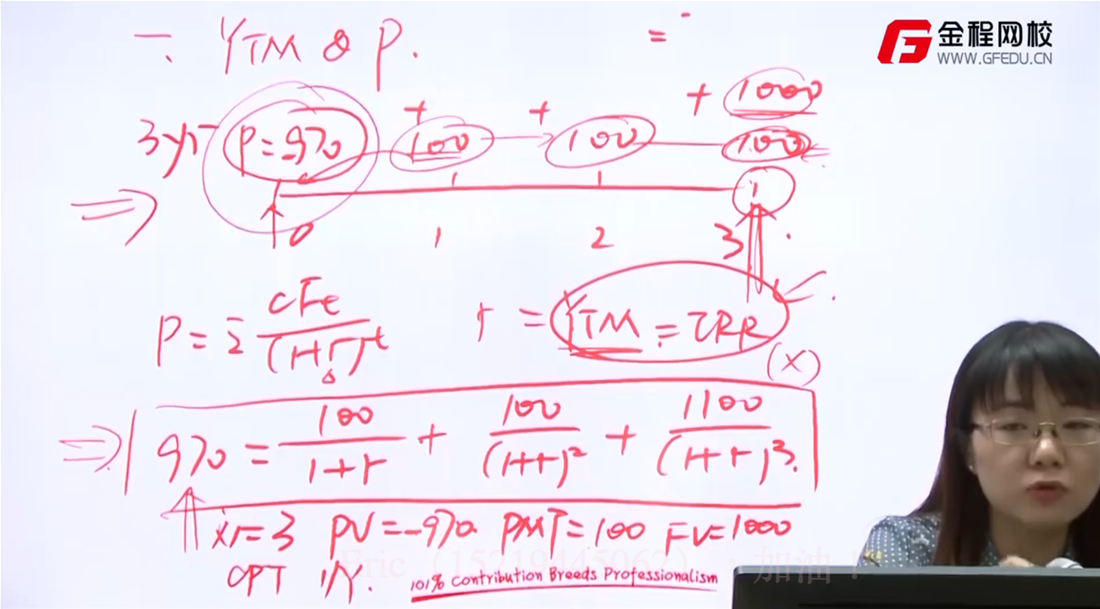 一. YTM & P. =
金程网校
WWW.GFEDU.CN
+ 1000
3yr P=970 + 100 + 100 100
0 1 2 3
P = Σ CFt / (1+r)^t r = YTM = IRR
(X)
970 = 100/(1+r) + 100/(1+r)^2 + 1100/(1+r)^3
N=3 PV=-970 PMT=100 FV=1000
CPT I/Y.
101% Contribution Breeds Professionalism